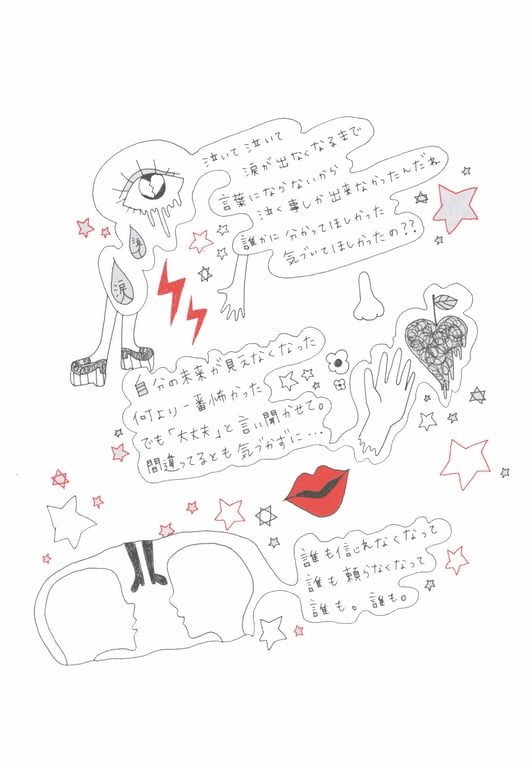 泣いて泣いて
涙が出なくなるまで
言葉にならないから
泣く事しか出来なかったんだね
誰かに分かってほしかった
気づいてほしかったの??
涙
涙
自分の未来が見えなくなった
何より一番怖かった
でも「大丈夫」と言い聞かせて。
間違ってるとも気づかずに…
誰も信じれなくなって
誰も頼らなくなって
誰も。誰も。